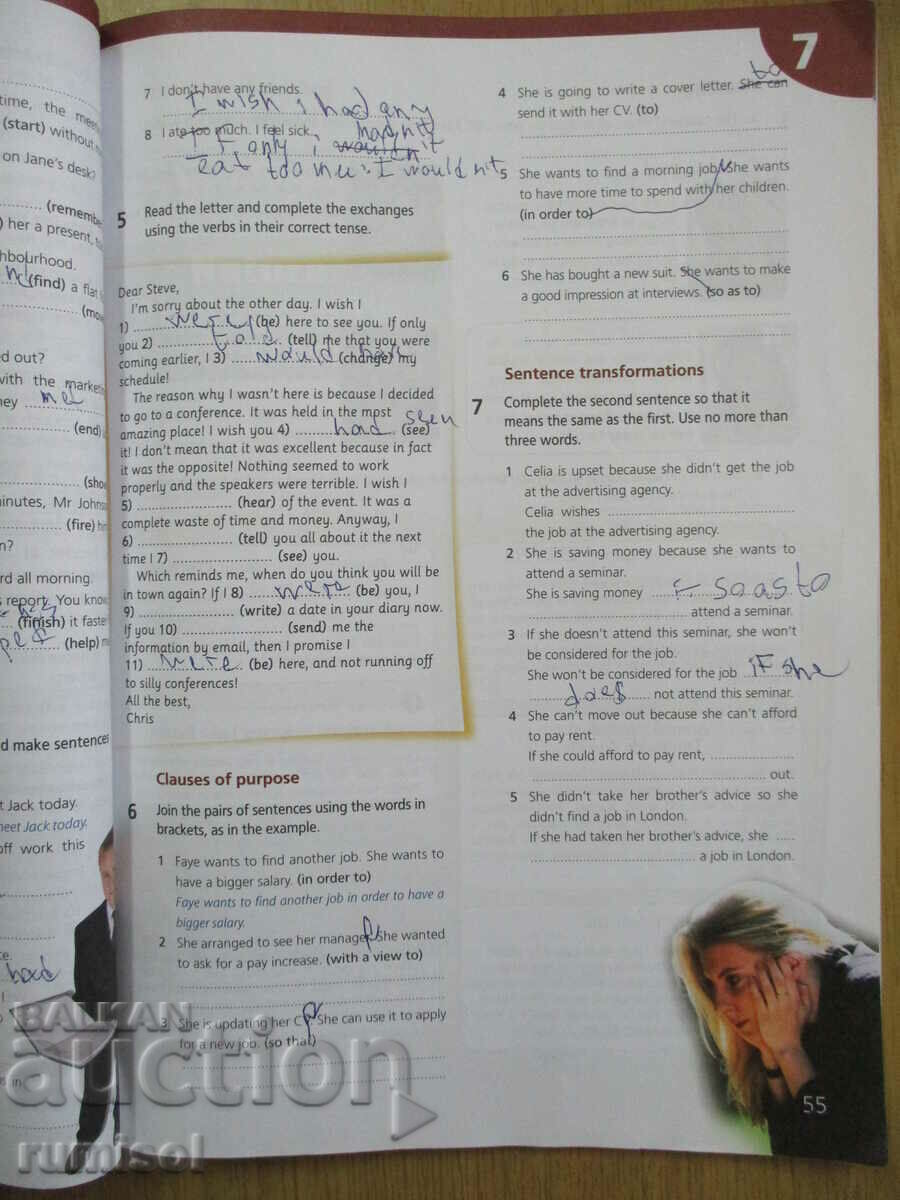 time, the
(start) without
on Jane's desk?
(remember
) her a present,
hbourhood.
(find) a flat
ed out?
with the market
ney me
(end)
inutes, Mr Johns
(fire)
n?
rd all morning.
s report. You know
(finish) it faste
(help)
d make sentences
t Jack today.
meet Jack today.
off work this
had
7
7 I don't have any friends.
I wish I had any
8 I ate too much. I feel sick.
hadn't
If only I wouldn't
eat too me I wouldn't
5 Read the letter and complete the exchanges
using the verbs in their correct tense.
Dear Steve,
I'm sorry about the other day. I wish I
1) were (be) here to see you. If only
you 2) told (tell) me that you were
coming earlier, I 3) would (change) my
schedule!
The reason why I wasn't here is because I decided
to go to a conference. It was held in the most
amazing place! I wish you 4) had seen (see)
it! I don't mean that it was excellent because in fact
it was the opposite! Nothing seemed to work
properly and the speakers were terrible. I wish I
5) (hear) of the event. It was a
complete waste of time and money. Anyway, I
6) (tell) you all about it the next
time I 7) (see) you.
Which reminds me, when do you think you will be
in town again? If I 8) were (be) you, I
9) (write) a date in your diary now.
If you 10) (send) me the
information by email, then I promise I
11) were (be) here, and not running off
to silly conferences!
All the best,
Chris
Clauses of purpose
6 Join the pairs of sentences using the words in
brackets, as in the example.
1 Faye wants to find another job. She wants to
have a bigger salary. (in order to)
Faye wants to find another job in order to have a
bigger salary.
2 She arranged to see her manager. She wanted
to ask for a pay increase. (with a view to)
3 She is updating her CV. She can use it to apply
for a new job. (so that)
to
4 She is going to write a cover letter. She can
send it with her CV. (to)
5 She wants to find a morning job. She wants
to have more time to spend with her children.
(in order to)
6 She has bought a new suit. She wants to make
a good impression at interviews. (so as to)
Sentence transformations
7 Complete the second sentence so that it
means the same as the first. Use no more than
three words.
1 Celia is upset because she didn't get the job
at the advertising agency.
Celia wishes
the job at the advertising agency.
2 She is saving money because she wants to
attend a seminar.
She is saving money so as to
attend a seminar.
3 If she doesn't attend this seminar, she won't
be considered for the job.
She won't be considered for the job if she
does not attend this seminar.
4 She can't move out because she can't afford
to pay rent.
If she could afford to pay rent,
out.
5 She didn't take her brother's advice so she
didn't find a job in London.
If she had taken her brother's advice, she
a job in London.
55
BALKAN
auction
rumisol